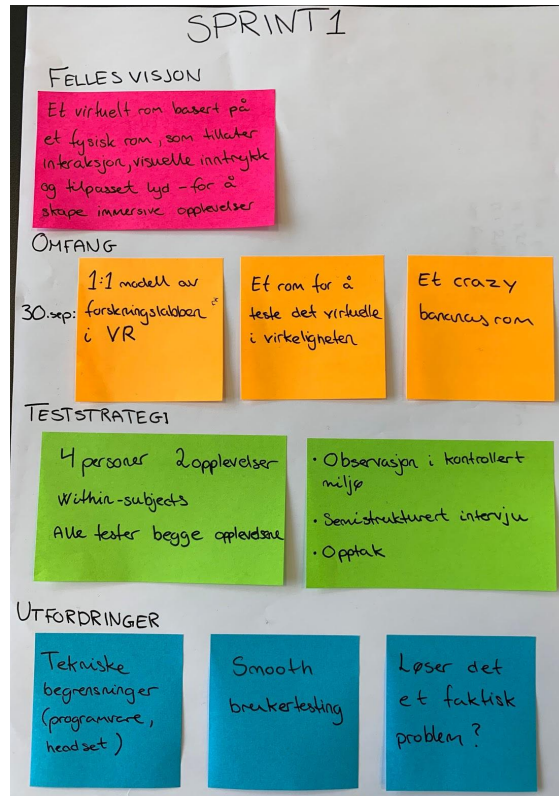 SPRINT 1
FELLES VISJON
Et virtuelt rom basert på
et fysisk rom, som tillater
interaksjon, visuelle inntrykk
og tilpasset lyd – for å
skape immersive opplevelser
OMFANG
30. sep:
1:1 modell av
forskningslabben
i VR
Et rom for å
teste det virtuelle
i virkeligheten
Et crazy
bananas rom
TESTSTRATEGI
4 personer 2 opplevelser
Within-subjects
Alle tester begge opplevelsene
• Observasjon i kontrollert
miljø
• Semistrukturert intervju
• Opptak
UTFORDRINGER
Tekniske
begrensninger
(programvare,
headset)
Smooth
brukertesting
Løser det
et faktisk
problem?